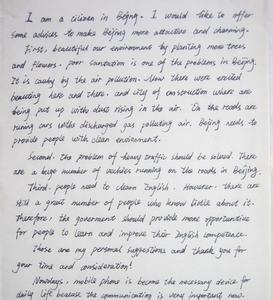 I am a citizen in Bejing. I would like to offer
some advices to make Beijing more attractive and charming.
First, beautiful our environment by planting more trees
and flowers. poor sanitation is one of the problems in Beijing.
It is cauby by the air pollution. Now there were erected
beauting here and there. and city of construction where are
being put up with dust rising in the air. On the roads are
runing cars with discharged gas polluting air. Beijing needs to
provide people with clean enviroment.
Second. the problem of heavy traffic should be solved. There
are a huge number of vechies running on the roads in Beijing.
Third. people need to learn English. However. there are
still a great number of people who know liddle about it.
Therefore, the government should provide more opportunities
for people to learn and improve their English competence.
Those are my personal suggestions and thank you for
your time and consideration!
Nowdays, mobile phone is become the necessary device for
daily life because the communication is very important now.